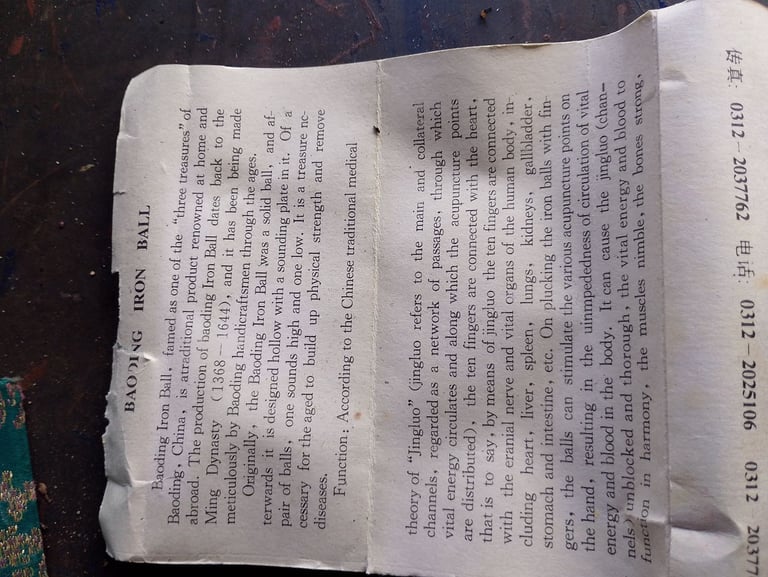 BAODING IRON BALL
Baoding Iron Ball, famed as one of the "three treasures" of
Baoding, China, is atraditional product renowned at home and
abroad. The production of baoding Iron Ball dates back to the
Ming Dynasty (1368-1644), and it has been being made
meticulously by Baoding handicraftsmen through the ages.
Originally, the Baoding Iron Ball was a solid ball, and af-
terwards it is designed hollow with a sounding plate in it. Of a
pair of balls, one sounds high and one low. It is a treasure nc-
cessary for the aged to build up physical strength and remove
diseases.
Function: According to the Chinese traditional medical
theory of "Jingluo" (jingluo refers to the main and collateral
channels, regarded as a network of passages, through which
vital energy circulates and along which the acupuncture points
are distributed), the ten fingers are connected with the heart,
that is to say, by means of jingluo the ten fingers are connected
with the eranial nerve and vital organs of the human body, in-
cluding heart, liver, spleen, lungs, kidneys, gallbladder,
stomach and intestine, etc. On plucking the iron balls with fin-
gers, the balls can stimulate the various acupuncture points on
the hand, resulting in the uinmpededness of circulation of vital
energy and blood in the body. It can cause the jingluo (chan-
nels) unblocked and thorough, the vital energy and blood to
function in harmony, the muscles nimble, the bones strong,
传真: 0312-2037762 电话: 0312-2025106 0312 20377